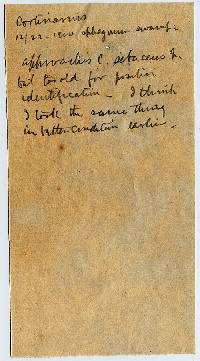 Cortinarius
12/22-1910 sphagnum swamp.
approaches C. setaceus
but too old for positive
identification - I think
I took the same thing
in better condition earlier.